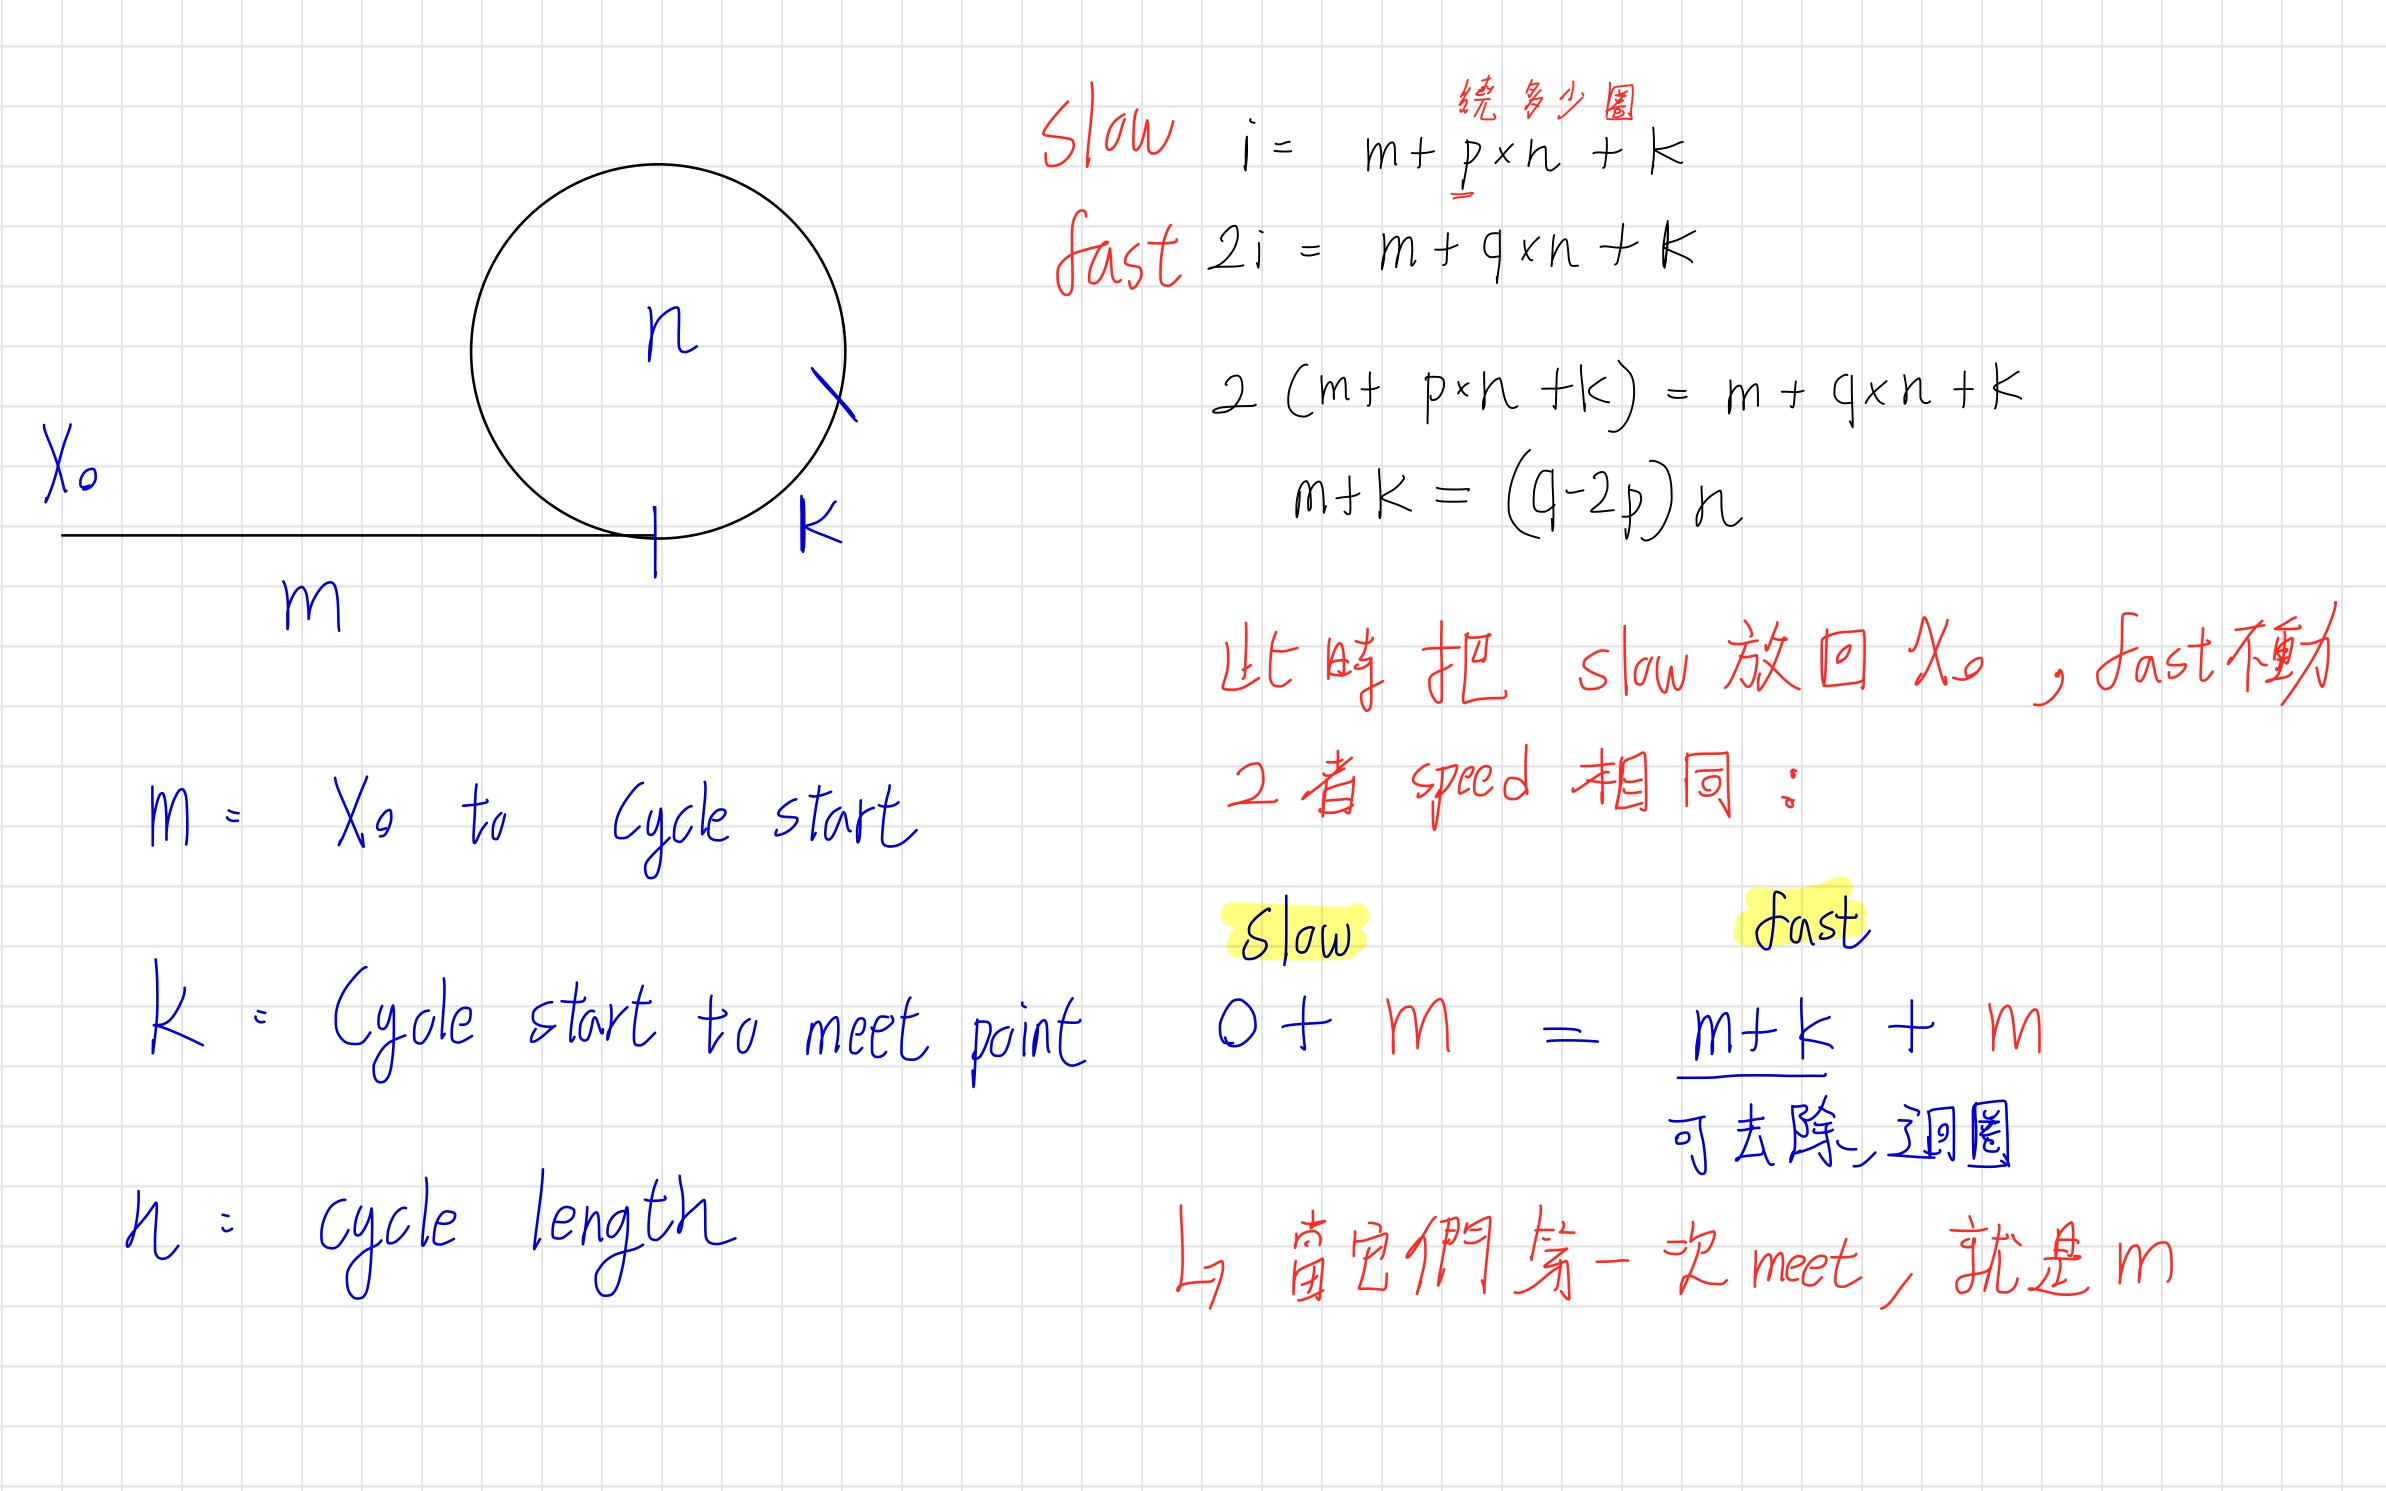 X₀
m
n
k
m = X₀ to Cycle start
k = Cycle start to meet point
n = cycle length
繞多少圈
slow i = m + p × n + k
fast 2i = m + q × n + k
2 (m + p × n + k) = m + q × n + k
m + k = (q - 2p) n
此時把 slow 放回 X₀, fast不動
2者 speed 相同:
slow fast
0 + m = m + k + m
可去除, 迴圈
↳ 當它們第一次 meet, 就是 m